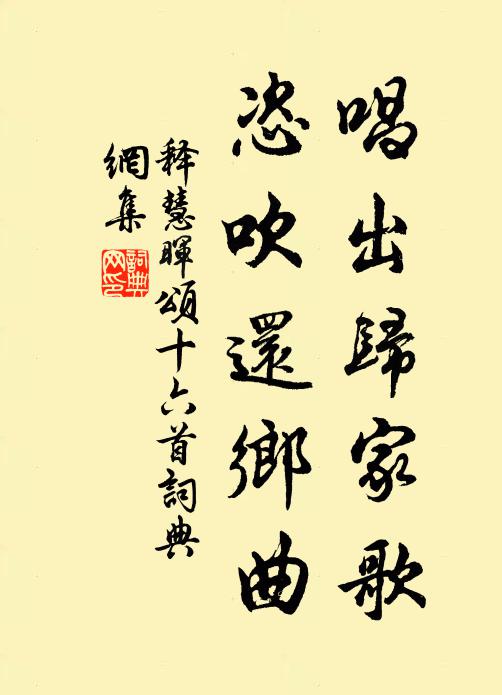 唱出歸家歌
恣吹還鄉曲
释慧暉頌十六首詞典
網集
詞典
网印